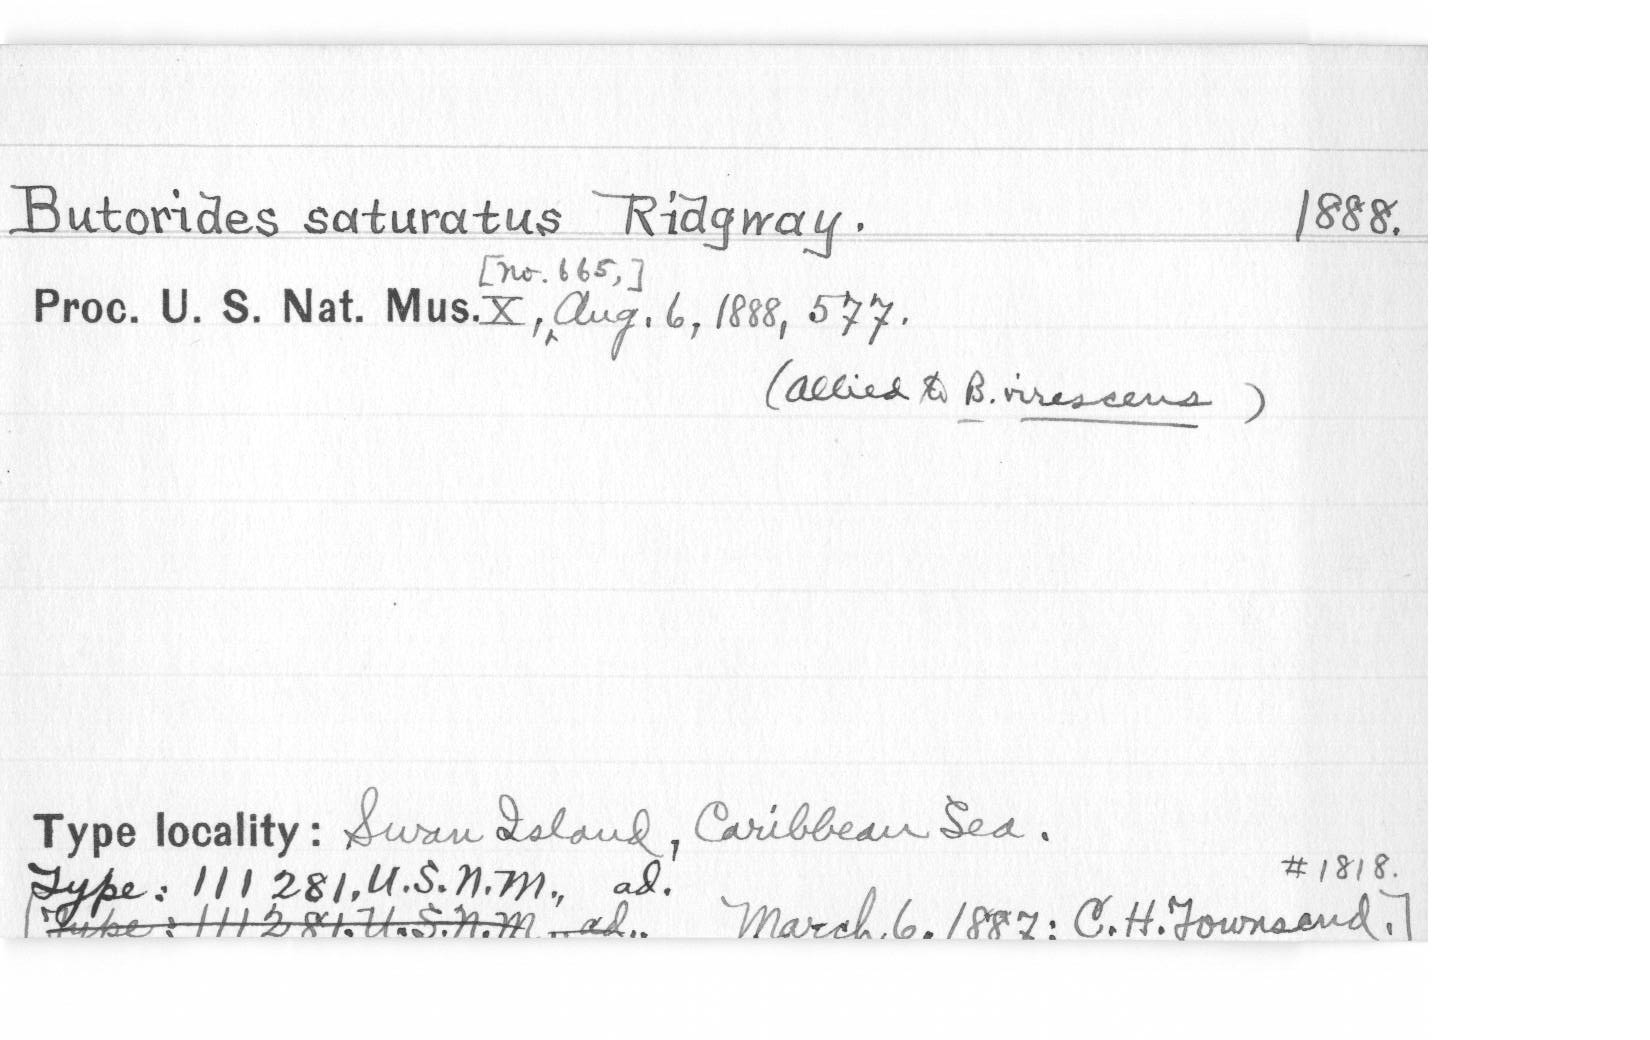 Butorides saturatus Ridgway. 1888.
[no. 665,]
Proc. U. S. Nat. Mus. X, Aug. 6, 1888, 577.
(allied to B. virescens )
Type locality: Swan Island, Caribbean Sea.
Type: 111 281, U.S.N.M., ad. #1818.
[Type: 111 281, U.S.N.M., ad., March 6, 1887: C.H. Townsend.]